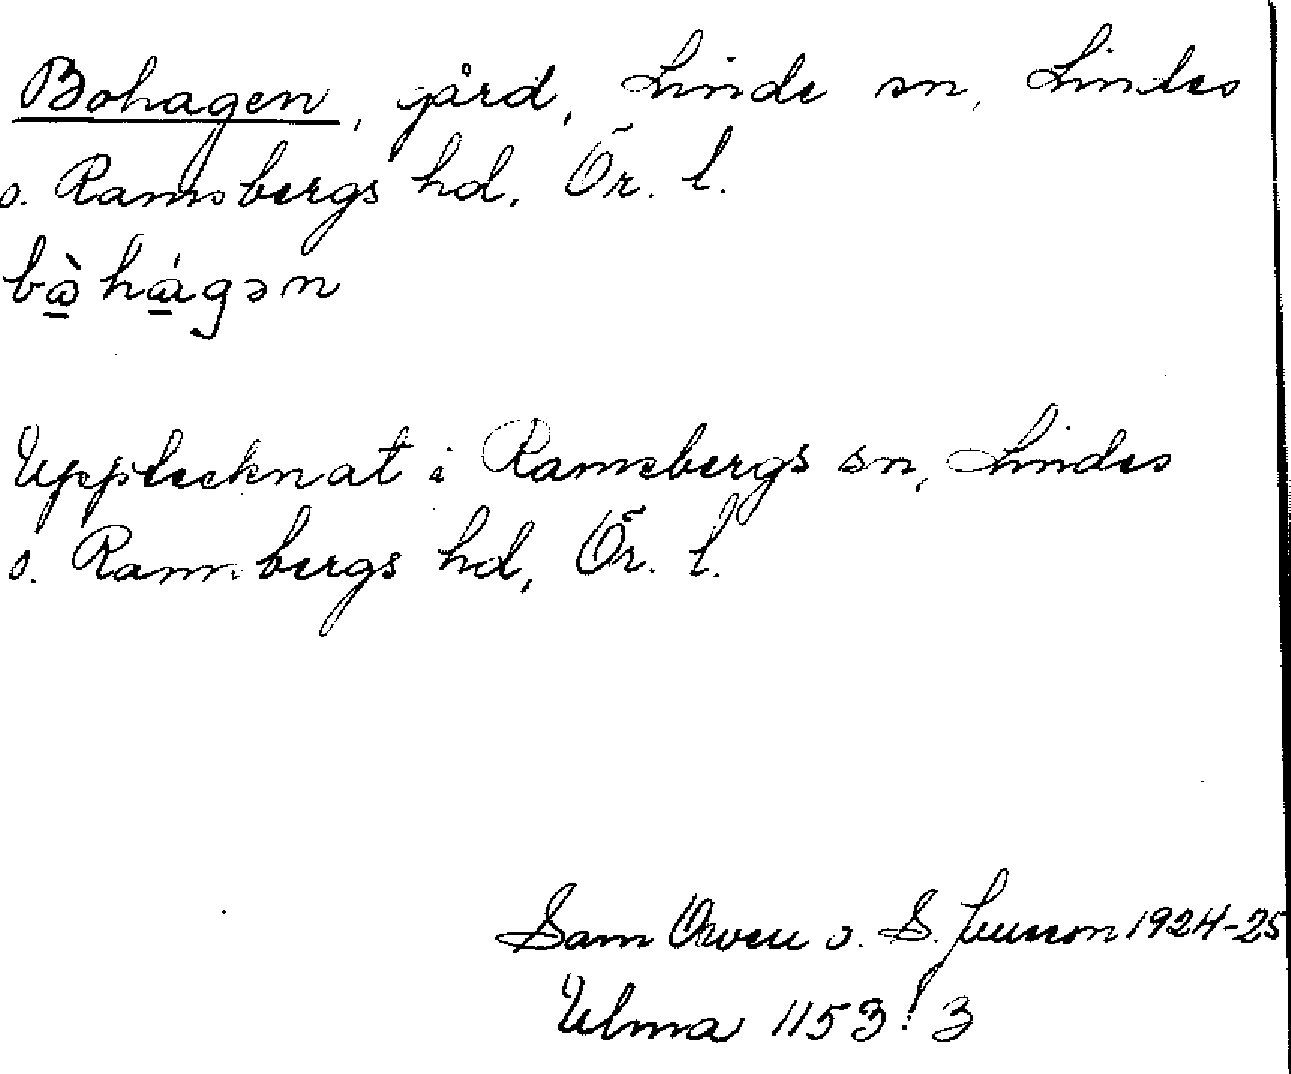 Bohagen, gård, Linde sn, Lindes
o. Ramsbergs hd, Ör. l.
bə̀hágən
Upptecknat i Ramsbergs sn, Lindes
o. Ramsbergs hd, Ör. l.
Sam Owen o. S. Jansson 1924-25
Ulma 1153:3